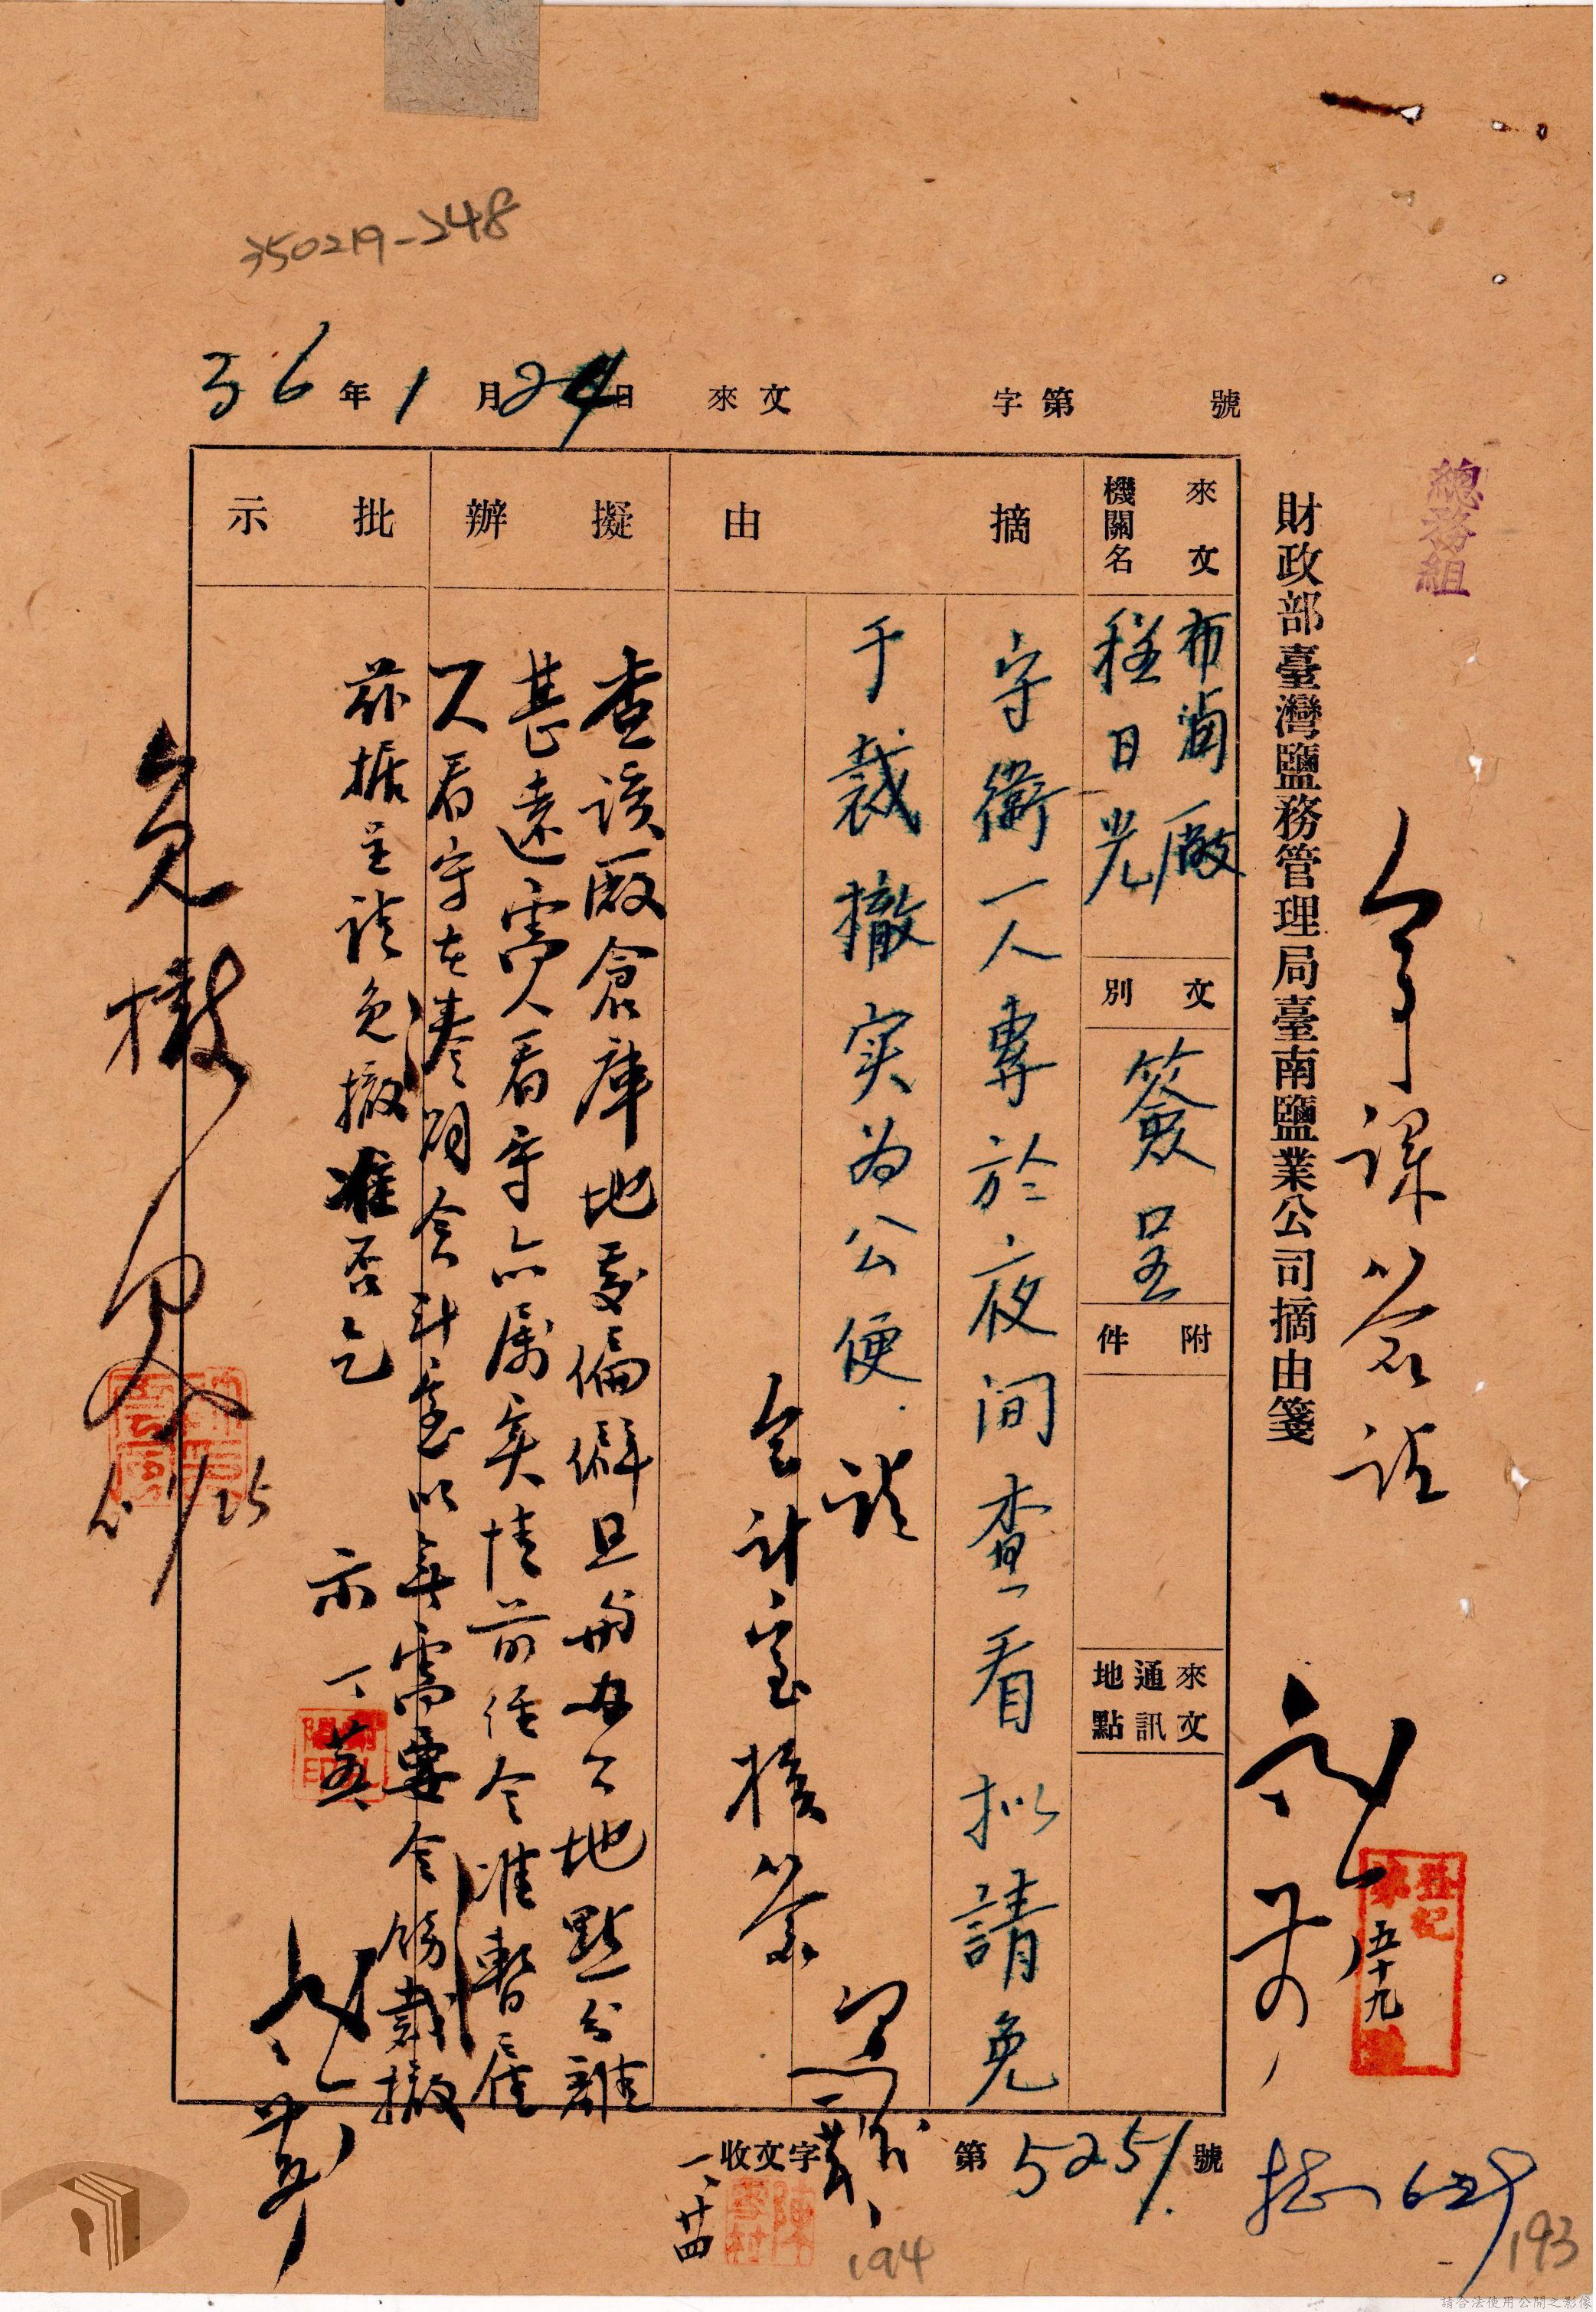 350219-248
總務組
財政部臺灣鹽務管理局臺南鹽業公司摘由箋
36年1月24日 來文 字第 號
來文機關名
布滷廠
程日光
文別
簽呈
附件
來文通訊地點
摘由
守衛一人專於夜间查看拟請免
于裁撤实為公便
請
会計室核簽
擬辦
查該廠倉庫地處偏僻且與办公地點分離
甚遠需人看守亦属实情前經令准暫雇
人看守在案嗣会計室以無需要令飭裁撤
茲據呈請免撤准否乞
示
批示
免撤
1/25
登記
五十九
收文字第5251號
一、廿四
194
193
請合法使用公開之影像